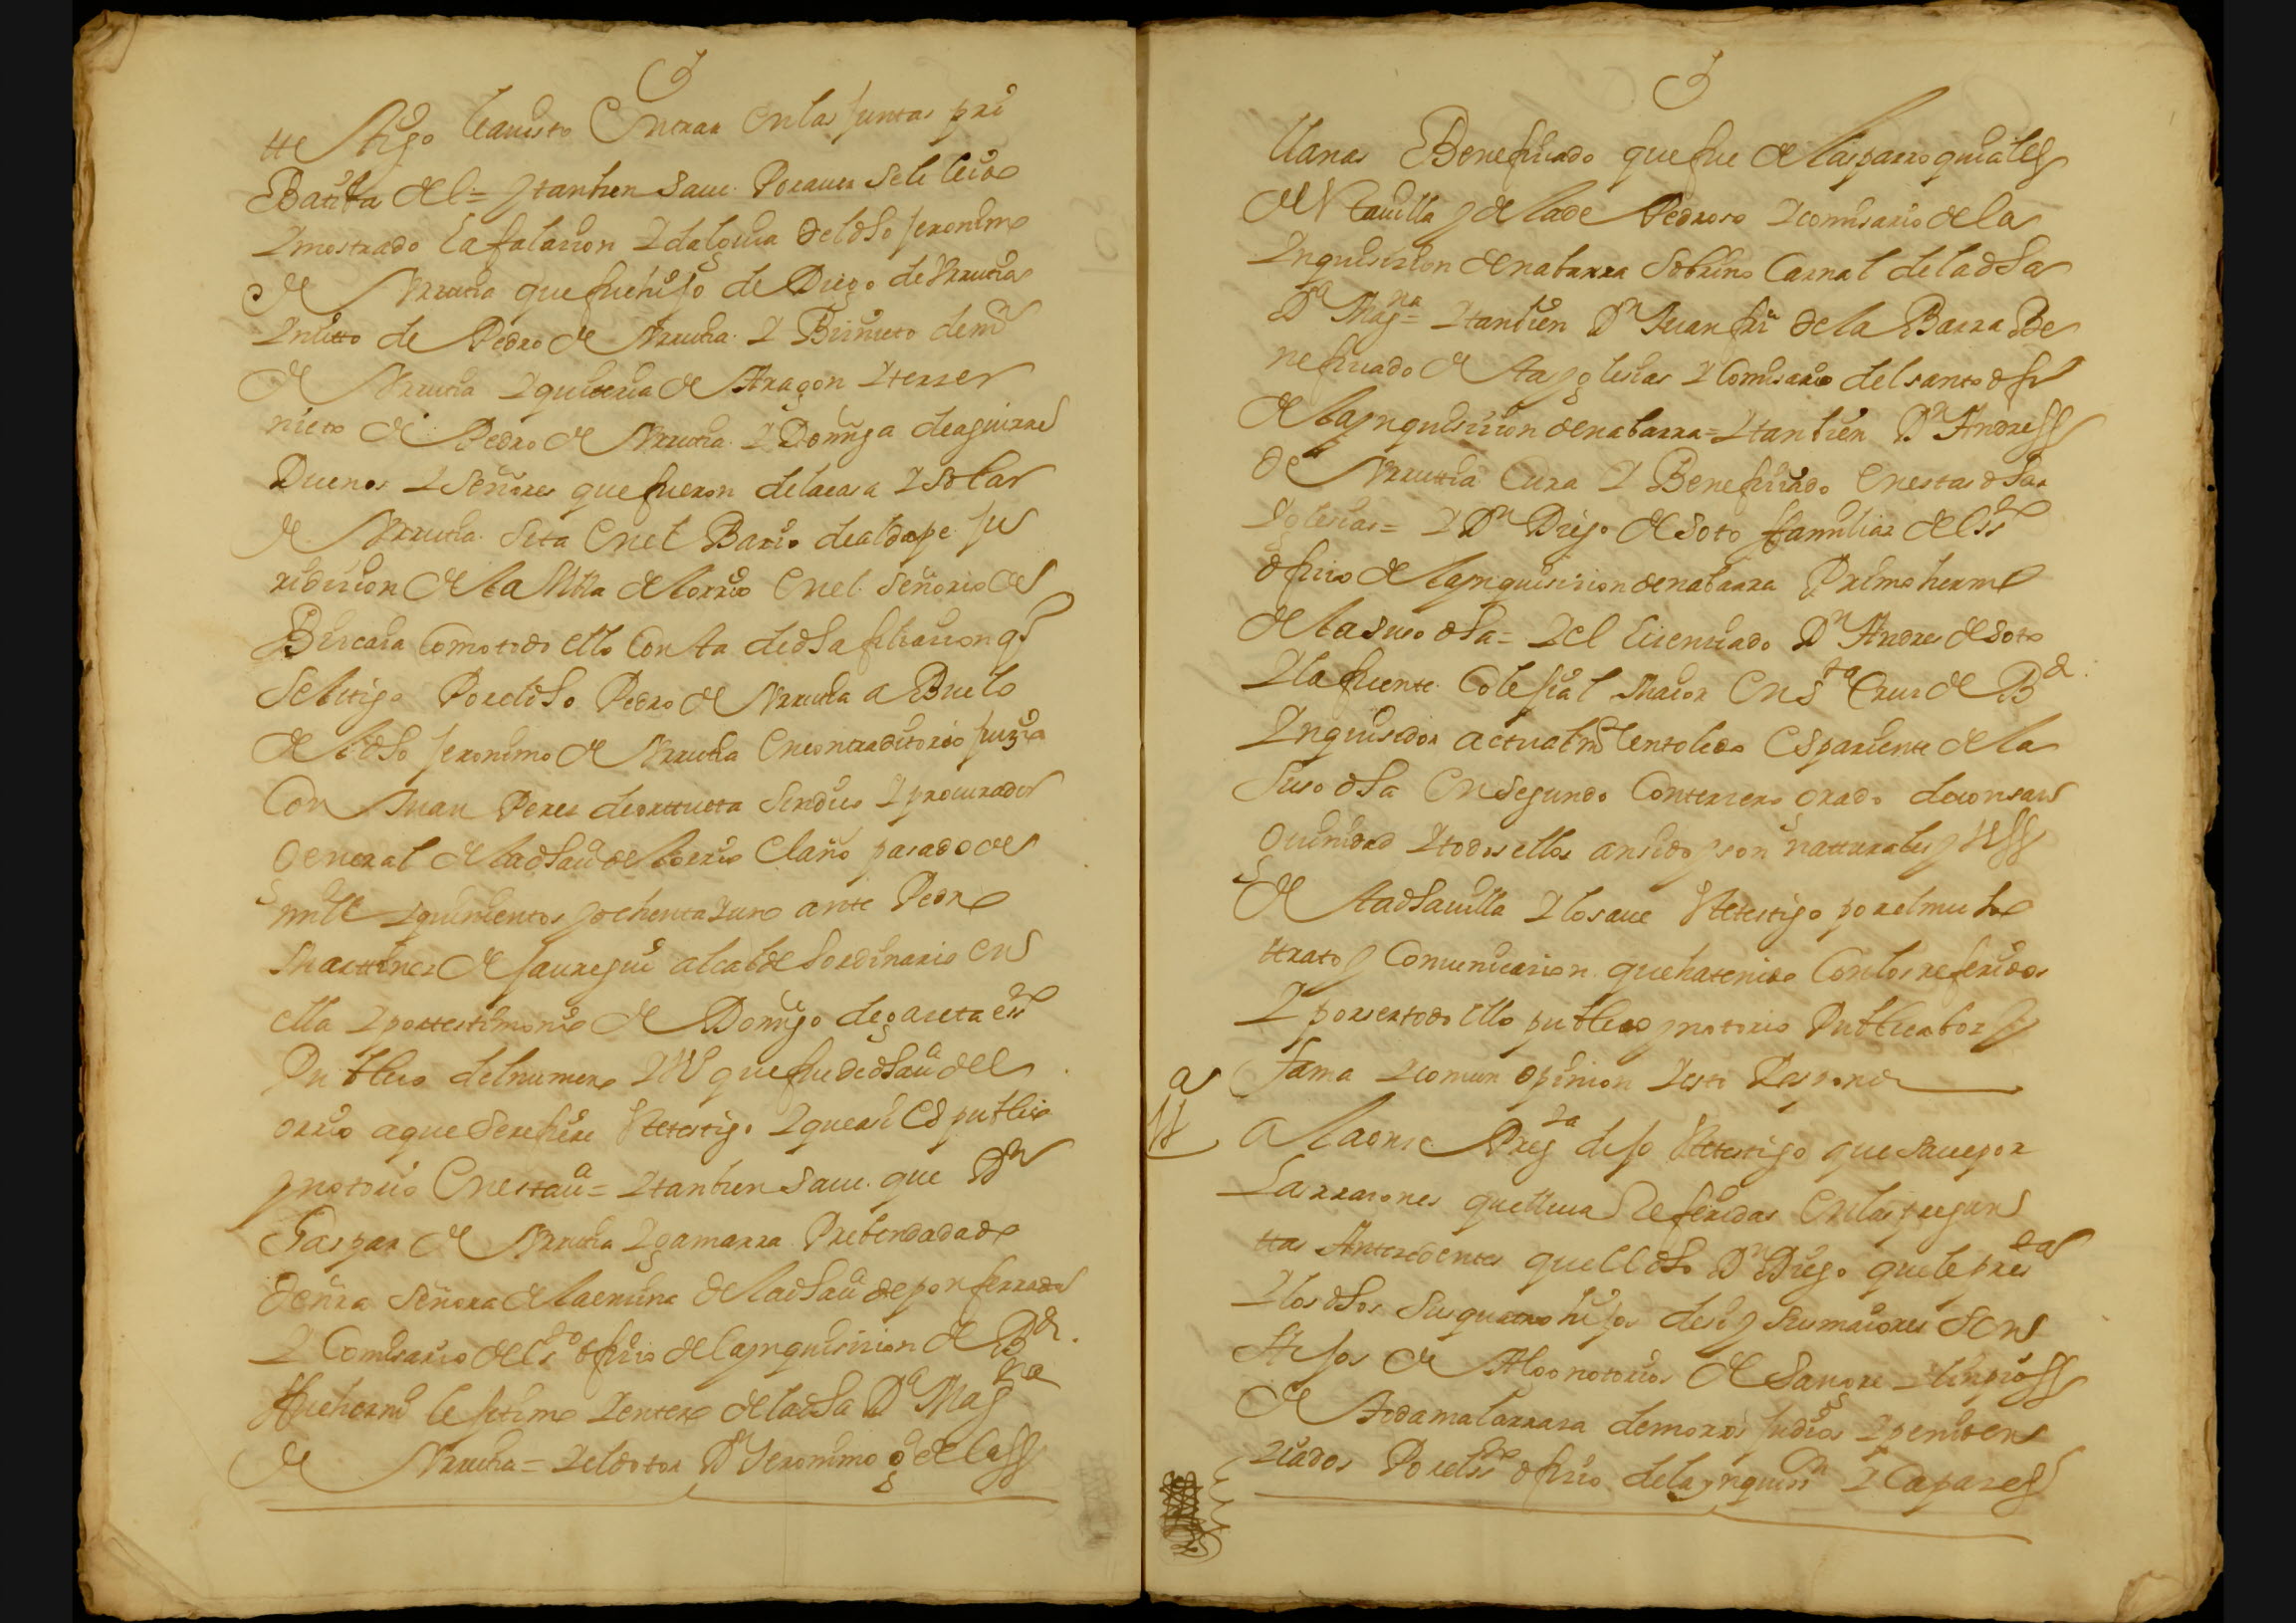 tte stigo le a uisto Entrar En las juntas pri
Batiba del = y tanbien saue Por auer sele leido
Y mostrado la falacion Ydalguia del dho jeronimo
de Vrrutia que fue hijo de Diego de Vrrutia
Y nieto de Pedro de Vrrutia Y Bisnieto de mĩ
de Vrrutia Y quiteria de Aragon Y terzer
nieto de Pedro de Vrrutia Y Domĩga de aguirre
Duenos Y señores que fueron de la casa Y solar
de Vrrutia sita En el Bario de aldape ju
ridicion de la Villa de lorrio En el señorio de
Biscaia Como todo ello Consta de dha filiacion q̃
se litigo Por el dho Pedro de Vrrutia a Buelo
del dho jeronimo de Vrrutia En contraditorio juizio
Con Juan Perez de orttueta sindico Y procurador
General de la dha uª de lorrio El año pasado de
mill Y quinientos y ochenta Y uno ante Pedro
Marttinez de jauregui alcalde hordinario en
ella Y por testimonio de Domĩgo de gaceta essno
Publico del numero Y Vº que fue de dha uª del
orrio a que se refiere Este testigo Y que asi Es publico
y notorio En esta uª = Y tanbien saue que Dn
Gaspar de Vrrutia Y gamarra Prebendado de
de ñra señora de la encina de la dha uª de ponferrada
Y Comisario del sto oficio de la ynquisicion de Bd.
fue hermº lejitimo Y entero de la dha Dª Magna
de Vrrutia = Y el dotor Dn Jeronimo gª de las
llanas Beneficiado que fue de las parroquiales
de V tauilla y de la de Pedroso Y comisario de la
Ynquisicion de nabarra sobrino Carnal de la dha
Dª Magna = Y tanbien Dn Juan frĩ de la Barra Be
neficiado de sta Yglesias Y Comisario del santo ofi
de la ynquisicion de nabarra = Y tanbien Dn Andress
de Vrruttia Cura Y Beneficiado En estas dhas
Yglesias = Y Dn Diego de soto ffamiliar del sto
oficio de la ynquisicion de nabarra Primo hermº
de la suso dha = Y el licenciado Dn Andres de soto
Y la fuente Colejial Maior En Sta Cruz de Bd.
Ynquisidor actualmte en toledo Es pariente de la
suso dha En segundo Con terzero grado de consan
guinidad Y todos ellos an sido y son natturales y Vss
de sta dha uilla Y lo saue Este testigo por el mucho
ttrato y Comunicacion que ha tenido Con los referidos
Y por ser todo ello publico y notorio Publica boz y
fama Y comun opinion Y esto Responde
a
11
A la onze Pregta dijo Este testigo que saue por
las rraçones que lleua Referidas En las pregun
ttas Antezedentes que El dho Dn Diego que le presta
Y los dhos sus quatro hijos de si y sus maiores son
Hijos de Algo notorios de Sangre Y linpioss
de toda mala rraza de moros judios Y peniten
ziados Por el sto oficio de la ynquissn Y Capazes